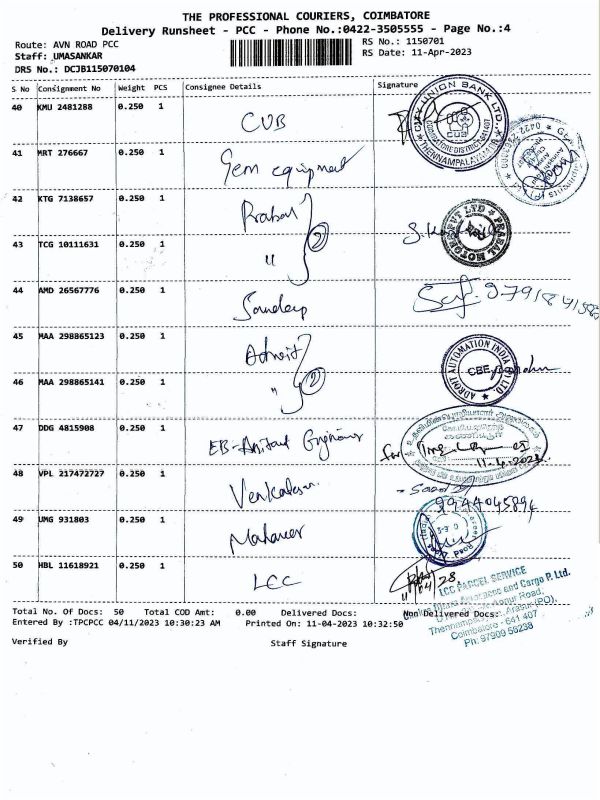 THE PROFESSIONAL COURIERS, COIMBATORE
Delivery Runsheet - PCC - Phone No.:0422-3505555 - Page No.:4
Route: AVN ROAD PCC
RS No.: 1150701
Staff: UMASANKAR
RS Date: 11-Apr-2023
DRS No.: DCJB115070104
S No Consignment No Weight PCS Consignee Details Signature
40 KMU 2481288 0.250 1 CUB
CITY UNION BANK LTD. CUB COIMBATORE DISTRICT-641407 THENNAMPALAYAM
41 MRT 276667 0.250 1 Gem equipment
42 KTG 7138657 0.250 1 Prabal
2
PRABAL MOTORS PVT LTD
43 TCG 10111631 0.250 1 "
44 AMD 26567776 0.250 1 Sandeep
45 MAA 298865123 0.250 1 Adroit
2
ADROIT AUTOMATION INDIA (P) LTD. CBE
46 MAA 298865141 0.250 1 "
47 DDG 4815908 0.250 1 EB-Assitant Engineer
for
11.4.2023
48 VPL 217472727 0.250 1 Venkatesan
9944045894
49 UMG 931803 0.250 1 Mahaveer
50 HBL 11618921 0.250 1 LCC
LCC PARCEL SERVICE
and Cargo P. Ltd.
Road,
Thennampalayam, Arasur(PO),
Coimbatore - 641 407
Ph: 97909 56238
Total No. Of Docs: 50 Total COD Amt: 0.00 Delivered Docs: Non Delivered Docs:
Entered By :TPCPCC 04/11/2023 10:30:23 AM Printed On: 11-04-2023 10:32:50
Verified By Staff Signature